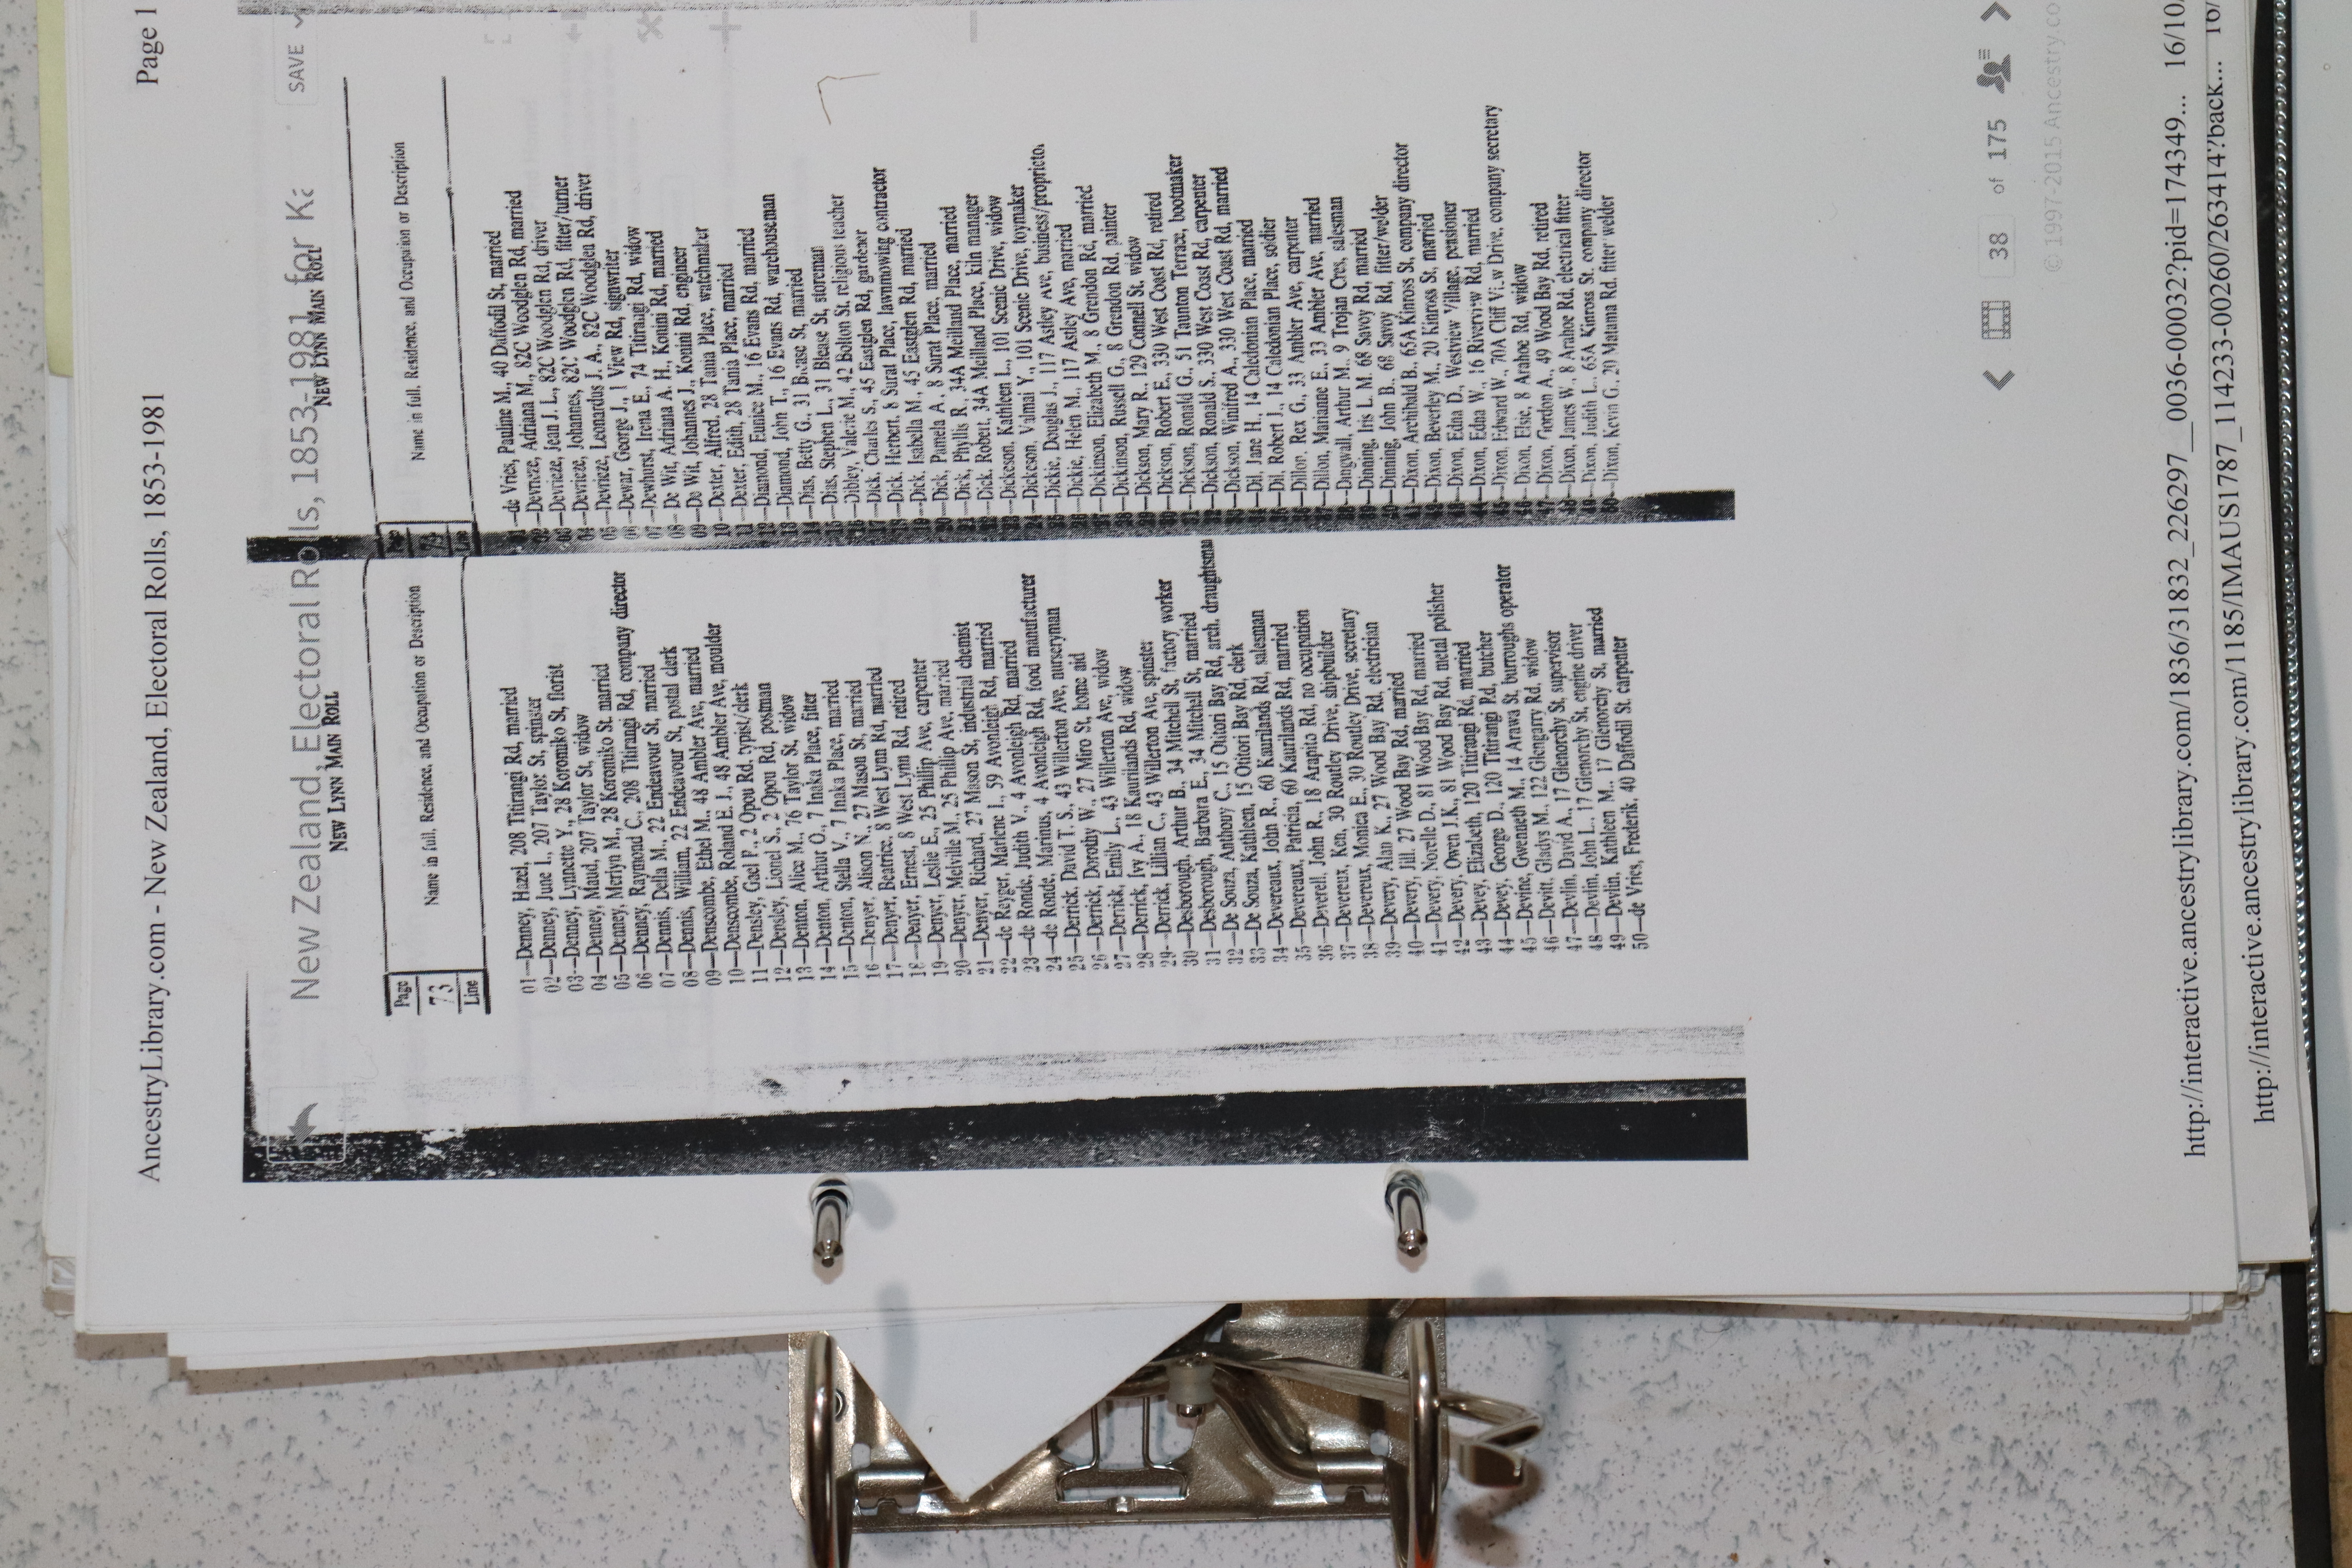 AncestryLibrary.com - New Zealand, Electoral Rolls, 1853-1981
Page 1
New Zealand, Electoral Rolls, 1853-1981 for
SAVE
NEW LYNN MAIN ROLL
Page
73
Line
Name in full, Residence, and Occupation or Description
01—Denney, Hazel, 208 Titirangi Rd, married
02—Denney, June I., 207 Taylor St, spinster
03—Denney, Lynnette Y., 28 Koromiko St, florist
04—Denney, Maud, 207 Taylor St, widow
05—Denney, Merlyn M., 28 Koromiko St. married
06—Denney, Raymond C., 208 Titirangi Rd, company director
07—Dennis, Della M., 22 Endeavour St, married
08—Dennis, William, 22 Endeavour St, postal clerk
09—Denscombe, Ethel M., 48 Ambler Ave, married
10—Denscombe, Roland E. J., 48 Ambler Ave, moulder
11—Densley, Gael P., 2 Opou Rd, typist/clerk
12—Densley, Lionel S., 2 Opou Rd, postman
13—Denton, Alice M., 76 Taylor St, widow
14—Denton, Arthur O., 7 Inaka Place, fitter
15—Denton, Stella V., 7 Inaka Place, married
16—Denyer, Alison N., 27 Mason St, married
17—Denyer, Beatrice, 8 West Lynn Rd, married
18—Denyer, Ernest, 8 West Lynn Rd, retired
19—Denyer, Leslie E., 25 Phillip Ave, carpenter
20—Denyer, Melville M., 25 Phillip Ave, married
21—Denyer, Richard, 27 Mason St, industrial chemist
22—de Reyger, Marlene I., 59 Avonleigh Rd, married
23—de Ronde, Judith V., 4 Avonleigh Rd, married
24—de Ronde, Marinus, 4 Avonleigh Rd, food manufacturer
25—Derrick, David T. S., 43 Willerton Ave, nurseryman
26—Derrick, Dorothy W., 27 Miro St, home aid
27—Derrick, Emily L., 43 Willerton Ave, widow
28—Derrick, Ivy A., 18 Kaurilands Rd, widow
29—Derrick, Lillian C., 43 Willerton Ave, spinster
30—Desborough, Arthur B., 34 Mitchell St, factory worker
31—Desborough, Barbara E., 34 Mitchell St, married
32—De Souza, Anthony C., 15 Otitori Bay Rd, arch. draughtsman
33—De Souza, Kathleen, 15 Otitori Bay Rd, clerk
34—Devereaux, John R., 60 Kaurilands Rd, salesman
35—Devereaux, Patricia, 60 Kaurilands Rd, married
36—Deverell, John R., 18 Arapito Rd, no occupation
37—Devereux, Ken, 30 Routley Drive, shipbuilder
38—Devereux, Monica E., 30 Routley Drive, secretary
39—Devery, Alan K., 27 Wood Bay Rd, electrician
40—Devery, Jill, 27 Wood Bay Rd, married
41—Devery, Norelle D., 81 Wood Bay Rd, married
42—Devery, Owen J.K., 81 Wood Bay Rd, metal polisher
43—Devey, Elizabeth, 120 Titirangi Rd, married
44—Devey, George D., 120 Titirangi Rd, butcher
45—Devine, Gwenneth M., 14 Arawa St, burroughs operator
46—Devitt, Gladys M., 122 Glengarry Rd, widow
47—Devlin, David A., 17 Glenorchy St, supervisor
48—Devlin, John L., 17 Glenorchy St, engine driver
49—Devlin, Kathleen M., 17 Glenorchy St, married
50—de Vries, Frederik, 40 Daffodil St, carpenter
NEW LYNN MAIN ROLL
Line
Name in full, Residence, and Occupation or Description
01—de Vries, Pauline M., 40 Daffodil St, married
02—Devrieze, Adriana M., 82C Woodglen Rd, married
03—Devrieze, Jean J. L., 82C Woodglen Rd, driver
04—Devrieze, Johannes, 82C Woodglen Rd, fitter/turner
05—Devrieze, Leonardus J. A., 82C Woodglen Rd, driver
06—Dewar, George J., 1 View Rd, signwriter
07—Dewhurst, Irena E., 74 Titirangi Rd, widow
08—De Wit, Adriana A. H., Konini Rd, married
09—De Wit, Johannes J., Konini Rd, engineer
10—Dexter, Alfred, 28 Tania Place, watchmaker
11—Dexter, Edith, 28 Tania Place, married
12—Diamond, Eunice M., 16 Evans Rd, married
13—Diamond, John T., 16 Evans Rd, warehouseman
14—Dias, Betty G., 31 Blease St, married
15—Dias, Stephen L., 31 Blease St, storeman
16—Dibley, Valerie M., 42 Bolton St, religious teacher
17—Dick, Charles S., 45 Eastglen Rd, gardener
18—Dick, Herbert, 8 Surat Place, lawnmowing contractor
19—Dick, Isabella M., 45 Eastglen Rd, married
20—Dick, Pamela A., 8 Surat Place, married
21—Dick, Phyllis R., 34A Meilland Place, married
22—Dick, Robert, 34A Meilland Place, kiln manager
23—Dickeson, Kathleen L., 101 Scenic Drive, widow
24—Dickeson, Valmai Y., 101 Scenic Drive, toymaker
25—Dickie, Douglas J., 117 Astley Ave, business/proprietor
26—Dickie, Helen M., 117 Astley Ave, married
27—Dickinson, Elizabeth M., 8 Grendon Rd, married
28—Dickinson, Russell G., 8 Grendon Rd, painter
29—Dickson, Mary R., 129 Connell St, widow
30—Dickson, Robert E., 330 West Coast Rd, retired
31—Dickson, Ronald G., 51 Taunton Terrace, bootmaker
32—Dickson, Ronald S., 330 West Coast Rd, carpenter
33—Dickson, Winifred A., 330 West Coast Rd, married
Dil, Jane H., 14 Caledonian Place, married
Dil, Robert J., 14 Caledonian Place, soldier
36—Dillon, Rex G., 33 Ambler Ave, carpenter
37—Dillon, Marianne E., 33 Ambler Ave, married
38—Dingwall, Arthur M., 9 Trojan Cres, salesman
39—Dinning, Iris L. M., 68 Savoy Rd, married
40—Dinning, John B., 68 Savoy Rd, fitter/welder
41—Dixon, Archibald B., 65A Kinross St, company director
42—Dixon, Beverley M., 20 Kinross St, married
43—Dixon, Edna D., Westview Village, pensioner
44—Dixon, Edna W., 16 Riverview Rd, married
45—Dixon, Edward W., 70A Cliff View Drive, company secretary
46—Dixon, Elsie, 8 Arahoe Rd, widow
47—Dixon, Gordon A., 49 Wood Bay Rd, retired
48—Dixon, James W., 8 Arahoe Rd, electrical fitter
49—Dixon, Judith L., 65A Kinross St, company director
50—Dixon, Kevin G., 20 Matama Rd, fitter welder
38 of 175
© 1997-2015 Ancestry.co
http://interactive.ancestrylibrary.com/1836/31832_226297__0036-00032?pid=174349... 16/10/
http://interactive.ancestrylibrary.com/1185/IMAUS1787_114233-00260/263414?back... 16/